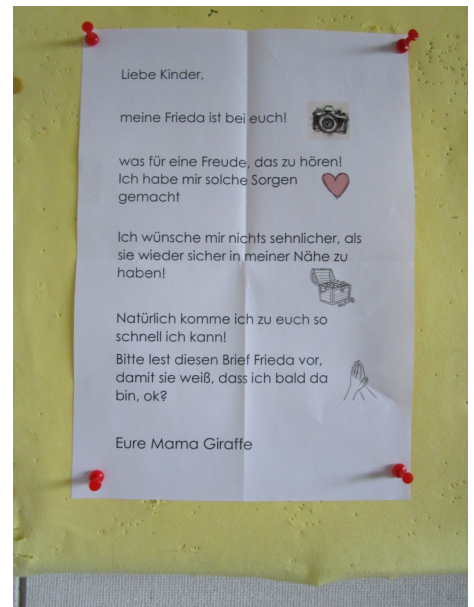 Liebe Kinder,
meine Frieda ist bei euch!
was für eine Freude, das zu hören!
Ich habe mir solche Sorgen
gemacht
Ich wünsche mir nichts sehnlicher, als
sie wieder sicher in meiner Nähe zu
haben!
Natürlich komme ich zu euch so
schnell ich kann!
Bitte lest diesen Brief Frieda vor,
damit sie weiß, dass ich bald da
bin, ok?
Eure Mama Giraffe